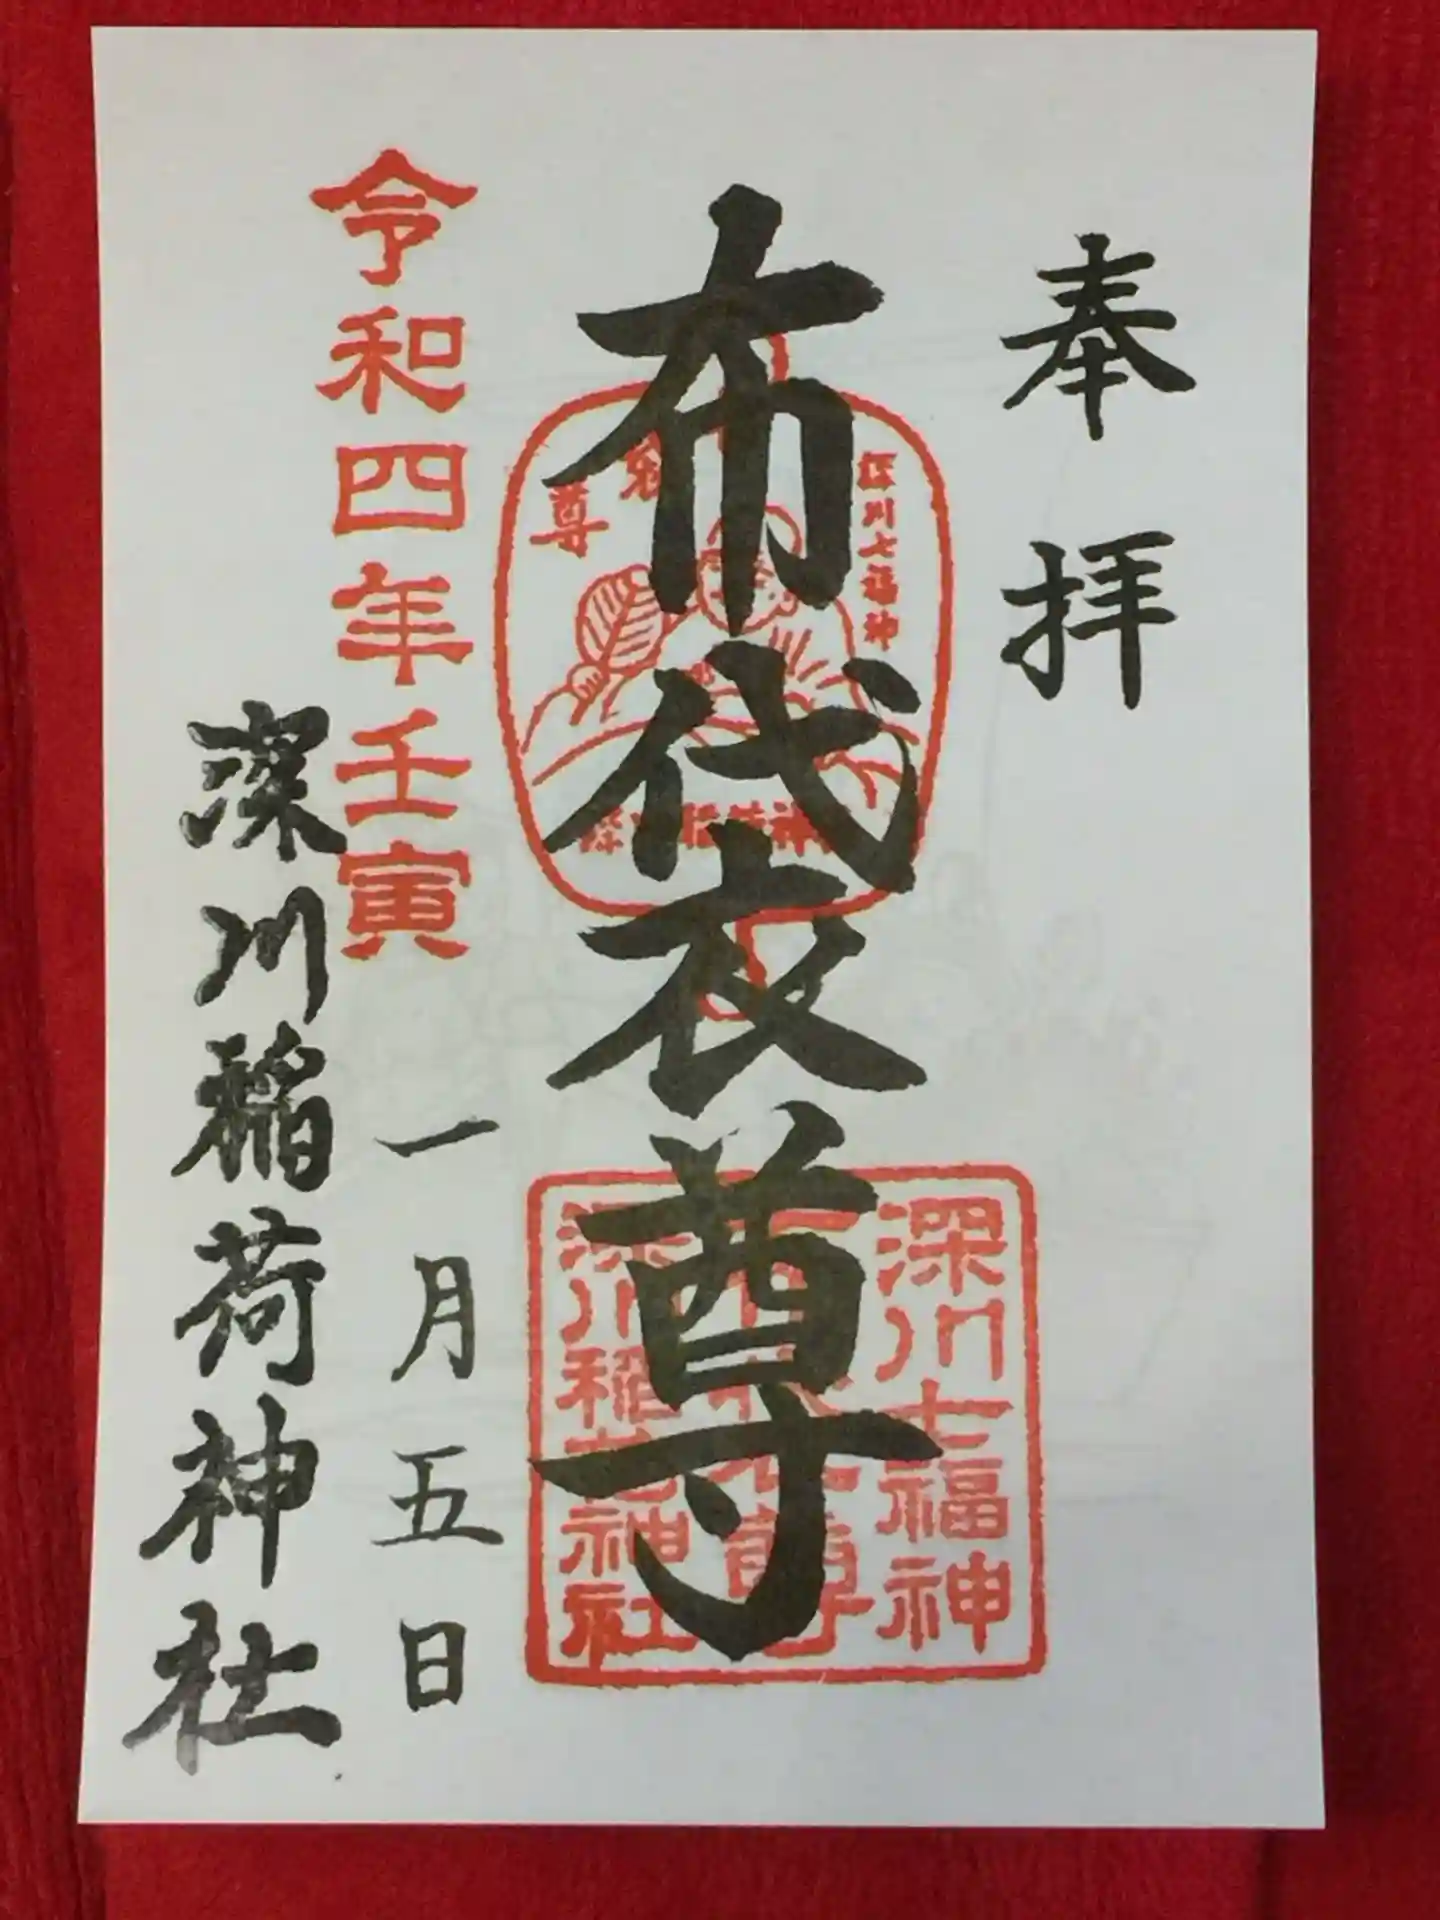 奉拝
布袋尊
深川七福神
尊
深川七福神
深川稲荷神社
令和四年壬寅
一月五日
深川稲荷神社